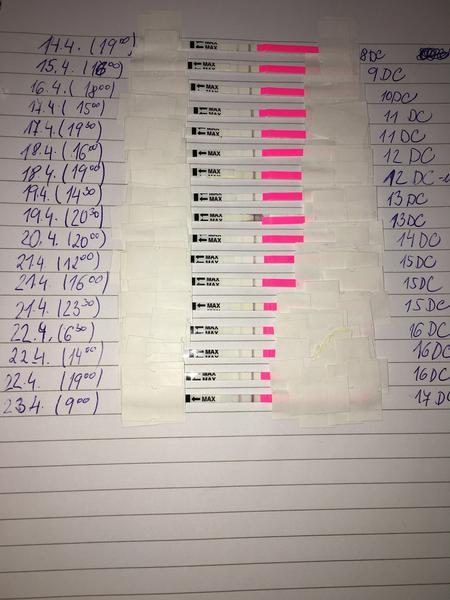 14.4. (19⁰⁰) MAX 8DC
15.4. (16⁰⁰) MAX MAX 9DC
16.4. (18⁰⁰) MAX MAX 10DC
17.4. (15⁰⁰) MAX MAX 11 DC
17.4. (19³⁰) MAX MAX 11 DC
18.4. (16⁰⁰) MAX 12 DC
18.4. (19⁰⁰) MAX MAX 12 DC
19.4. (14³⁰) MAX MAX 13DC
19.4. (20³⁰) MAX 13DC
20.4. (20⁰⁰) MAX MAX 14DC
21.4. (12⁰⁰) MAX MAX 15DC
21.4. (16⁰⁰) MAX MAX 15DC
21.4. (23³⁰) MAX 15DC
22.4. (6³⁰) MAX MAX 16DC
22.4. (14⁰⁰) MAX MAX 16DC
22.4. (19⁰⁰) MAX 16DC
23.4. (9⁰⁰) MAX 17DC